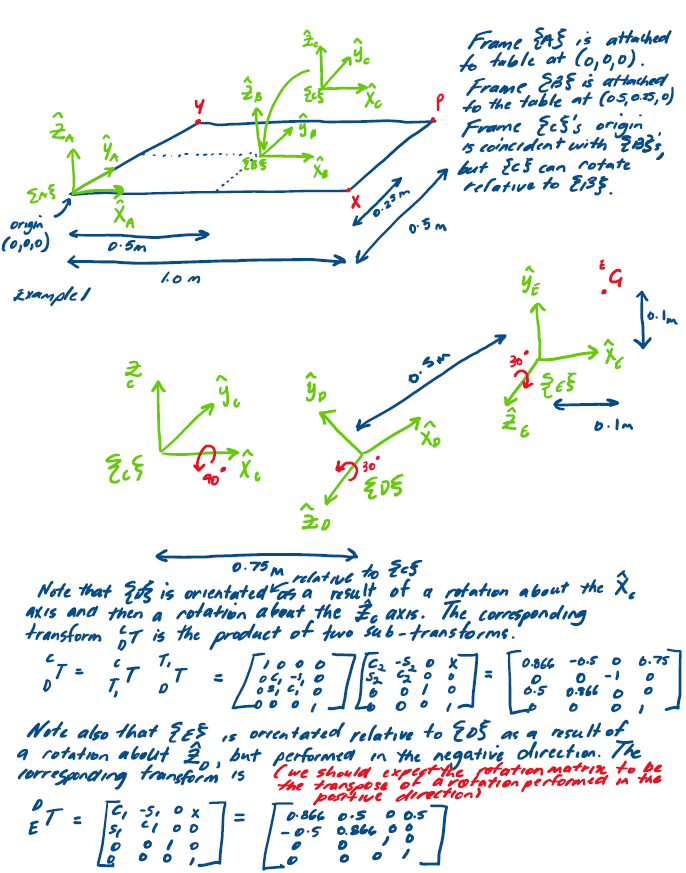 Frame {A} is attached
to table at (0,0,0).
Frame {B} is attached
to the table at (0.5,0.25,0)
Frame {C}'s origin
is coincident with {B}'s,
but {C} can rotate
relative to {B}.
Ẑc
ŷc
{C}
X̂c
Y
ẐB
ŷB
P
ẐA
ŷA
{B}
X̂B
{A}
X̂A
X
origin
(0,0,0)
0.5m
0.25m
0.5m
1.0 m
Example 1
ŷE
G
0.1m
X̂E
30°
{E}
ẐE
0.1m
0.5m
Ẑc
ŷc
{C}
90°
X̂c
ŷD
X̂D
30°
{D}
ẐD
0.75m
relative to {C}
Note that {D} is orientated as a result of a rotation about the X̂c
axis and then a rotation about the Ẑc axis. The corresponding
transform C D T is the product of two sub-transforms.
C D T = C T1 T T1 D T = [1 0 0 0; 0 C1 -S1 0; 0 S1 C1 0; 0 0 0 1] [C2 -S2 0 X; S2 C2 0 0; 0 0 1 0; 0 0 0 1] = [0.866 -0.5 0 0.75; 0 0 -1 0; 0.5 0.866 0 0; 0 0 0 1]
Note also that {E} is orientated relative to {D} as a result of
a rotation about ẐD, but performed in the negative direction. The
corresponding transform is (we should expect the rotation matrix to be
the transpose of a rotation performed in the
positive direction)
D E T = [C1 -S1 0 X; S1 C1 0 0; 0 0 1 0; 0 0 0 1] = [0.866 0.5 0 0.5; -0.5 0.866 0 0; 0 0 1 0; 0 0 0 1]